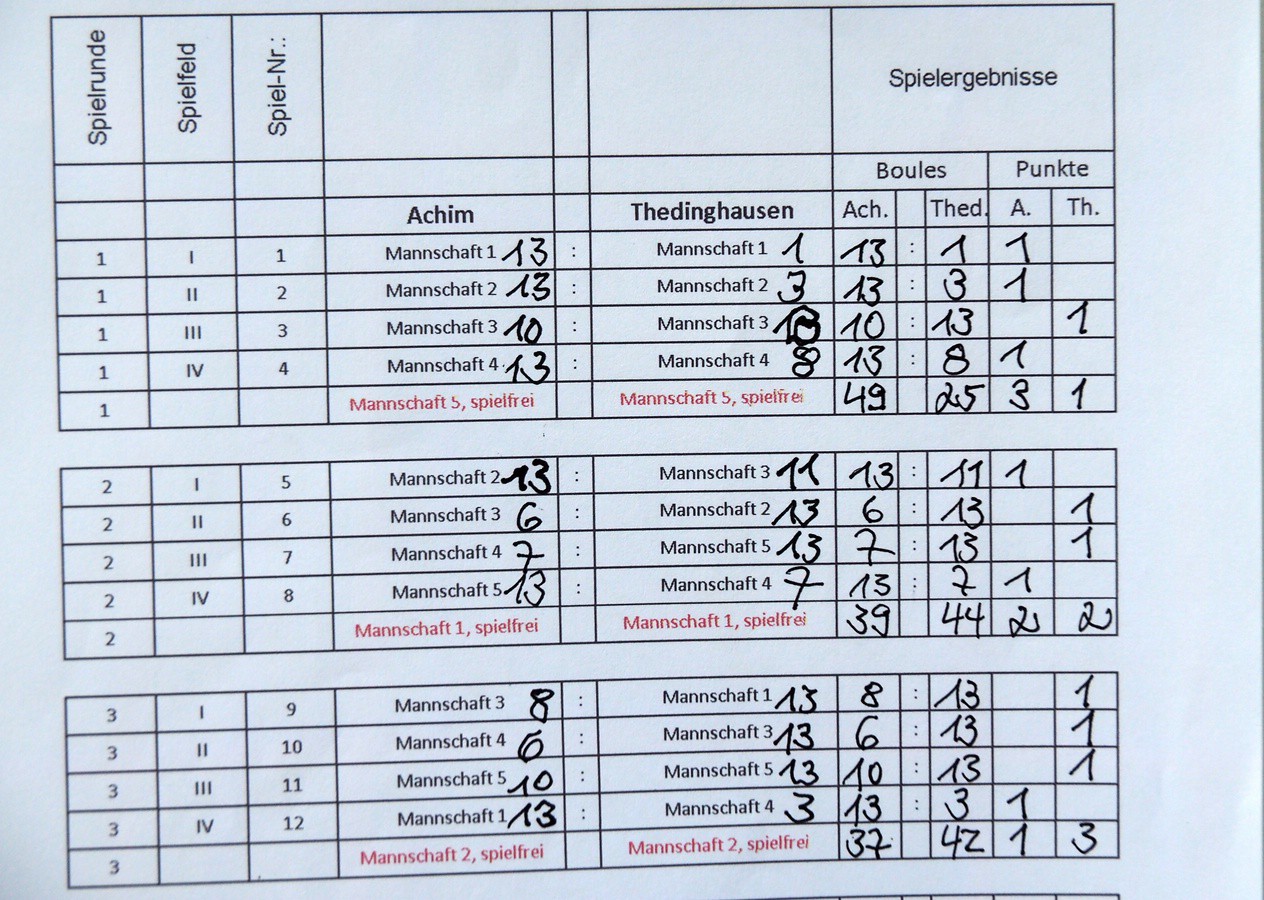 Spielrunde Spielfeld Spiel-Nr.: Spielergebnisse
Boules Punkte
Achim Thedinghausen Ach. Thed. A. Th.
1 I 1 Mannschaft 1 13 : Mannschaft 1 1 13 : 1 1
1 II 2 Mannschaft 2 13 : Mannschaft 2 3 13 : 3 1
1 III 3 Mannschaft 3 10 : Mannschaft 3 13 10 : 13 1
1 IV 4 Mannschaft 4 13 : Mannschaft 4 8 13 : 8 1
1 Mannschaft 5, spielfrei Mannschaft 5, spielfrei 49 25 3 1
2 I 5 Mannschaft 2 13 : Mannschaft 3 11 13 : 11 1
2 II 6 Mannschaft 3 6 : Mannschaft 2 13 6 : 13 1
2 III 7 Mannschaft 4 7 : Mannschaft 5 13 7 : 13 1
2 IV 8 Mannschaft 5 13 : Mannschaft 4 7 13 : 7 1
2 Mannschaft 1, spielfrei Mannschaft 1, spielfrei 39 44 2 2
3 I 9 Mannschaft 3 8 : Mannschaft 1 13 8 : 13 1
3 II 10 Mannschaft 4 6 : Mannschaft 3 13 6 : 13 1
3 III 11 Mannschaft 5 10 : Mannschaft 5 13 10 : 13 1
3 IV 12 Mannschaft 1 13 : Mannschaft 4 3 13 : 3 1
3 Mannschaft 2, spielfrei Mannschaft 2, spielfrei 37 42 1 3